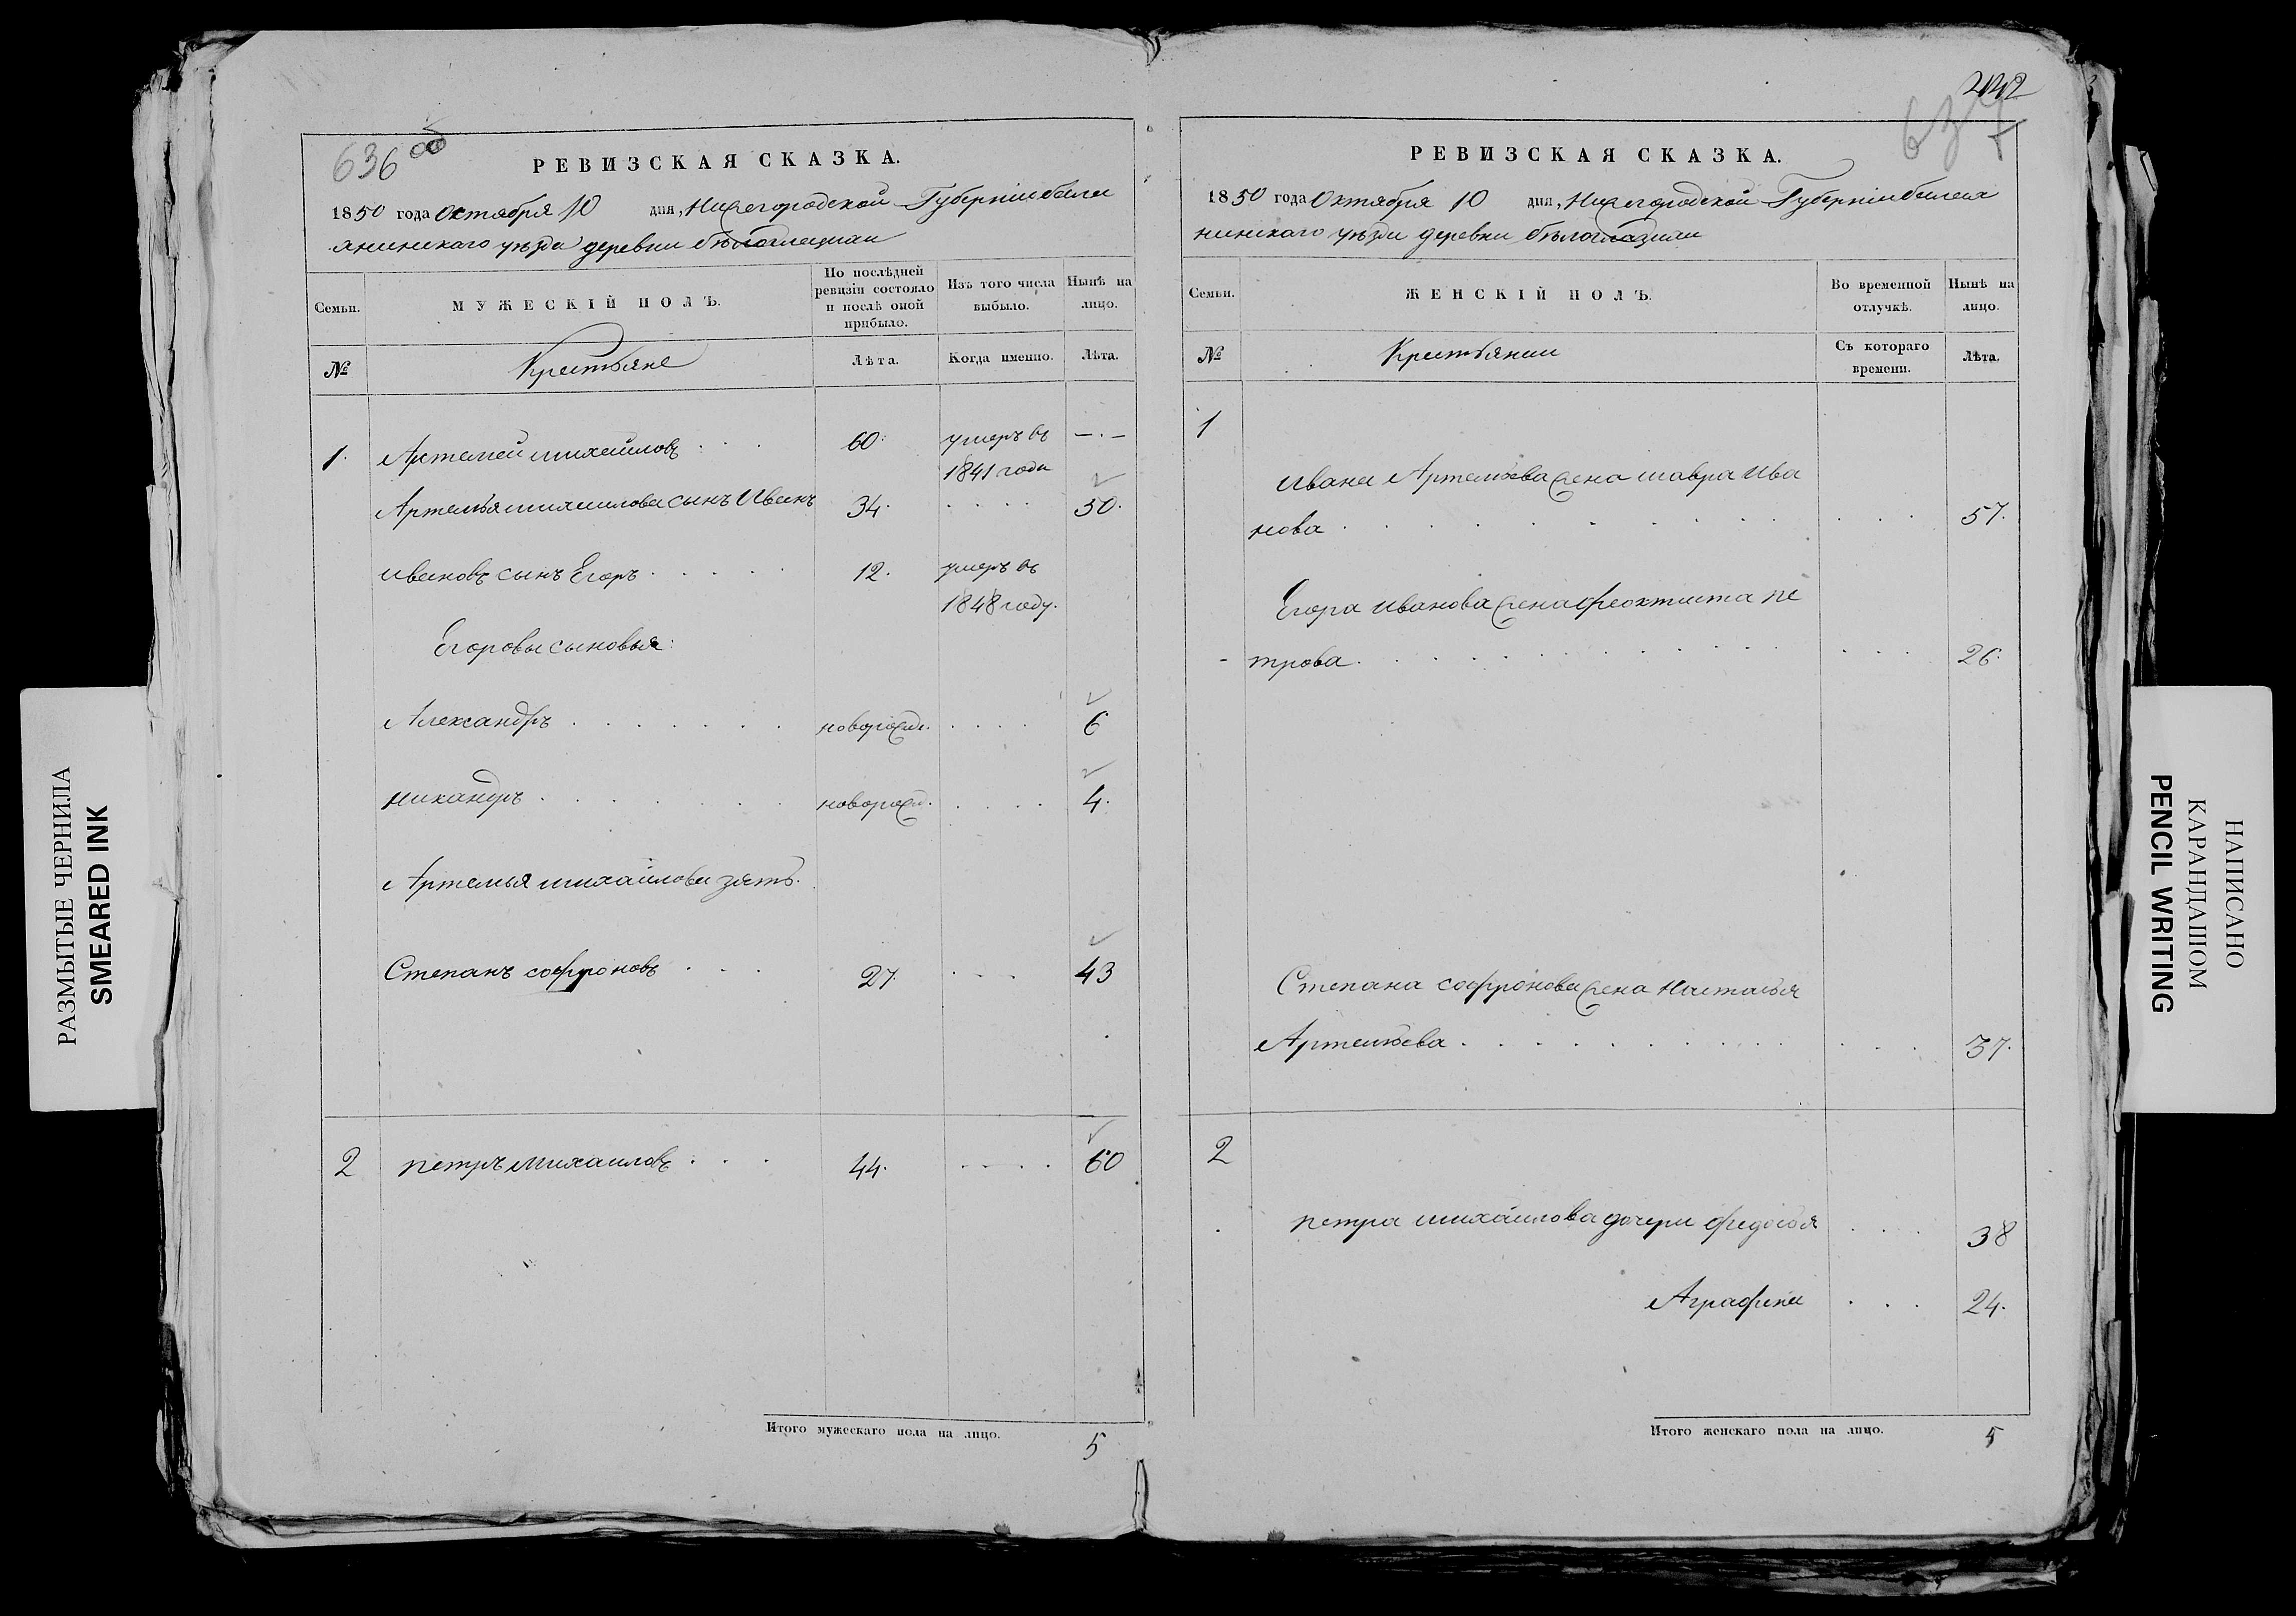 636 об
РЕВИЗСКАЯ СКАЗКА.
1850 года Октября 10 дня, Нижегородской Губернiи бала
хнинскаго уезда деревни
Семьи.
МУЖЕСКІЙ ПОЛЪ.
По послѣдней ревизіи состояло и послѣ оной прибыло.
Изъ того числа выбыло.
Нынѣ на лицо.
№
Крестьяне
Лѣта.
Когда именно.
Лѣта.
1. Артемей михайловъ . . . 60. умеръ въ — . —
1841 года
Артемья михайлова сынъ Иванъ 34. . . . . 50.
ивановъ сынъ Егоръ . . . . . 12. умеръ въ
1848 году.
Егоровы сыновья:
Александръ . . . . . . . новорожд. . . . . 6
никандръ . . . . . . . новорожд. . . . . 4.
Артемья михайлова зять.
Степанъ софроновъ . . . 27. . . . 43
2 петръ михаиловъ . . . 44. . . . . 60
Итого мужескаго пола на лицо. 5
242
РЕВИЗСКАЯ СКАЗКА.
1850 года Октября 10 дня, Нижегородской Губернiи балах
нинскаго уезда деревни
Семьи.
ЖЕНСКІЙ ПОЛЪ.
Во временной отлучкѣ.
Нынѣ на лицо.
№
Крестьянки
Съ котораго времени.
Лѣта.
1
ивана Артемьева жена мавра Ива
нова . . . . . . . . . . . . 57.
Егора иванова жена феоктиста пе
трова . . . . . . . . . . . . 26.
Степана софронова жена Настасья
Артемьева . . . . . . . . . . . 37.
2
петра михайлова дочери федосья . . . 38
Аграфена . . . 24.
Итого женскаго пола на лицо. 5
РАЗМЫТЫЕ ЧЕРНИЛА
SMEARED INK
НАПИСАНО
КАРАНДАШОМ
PENCIL WRITING